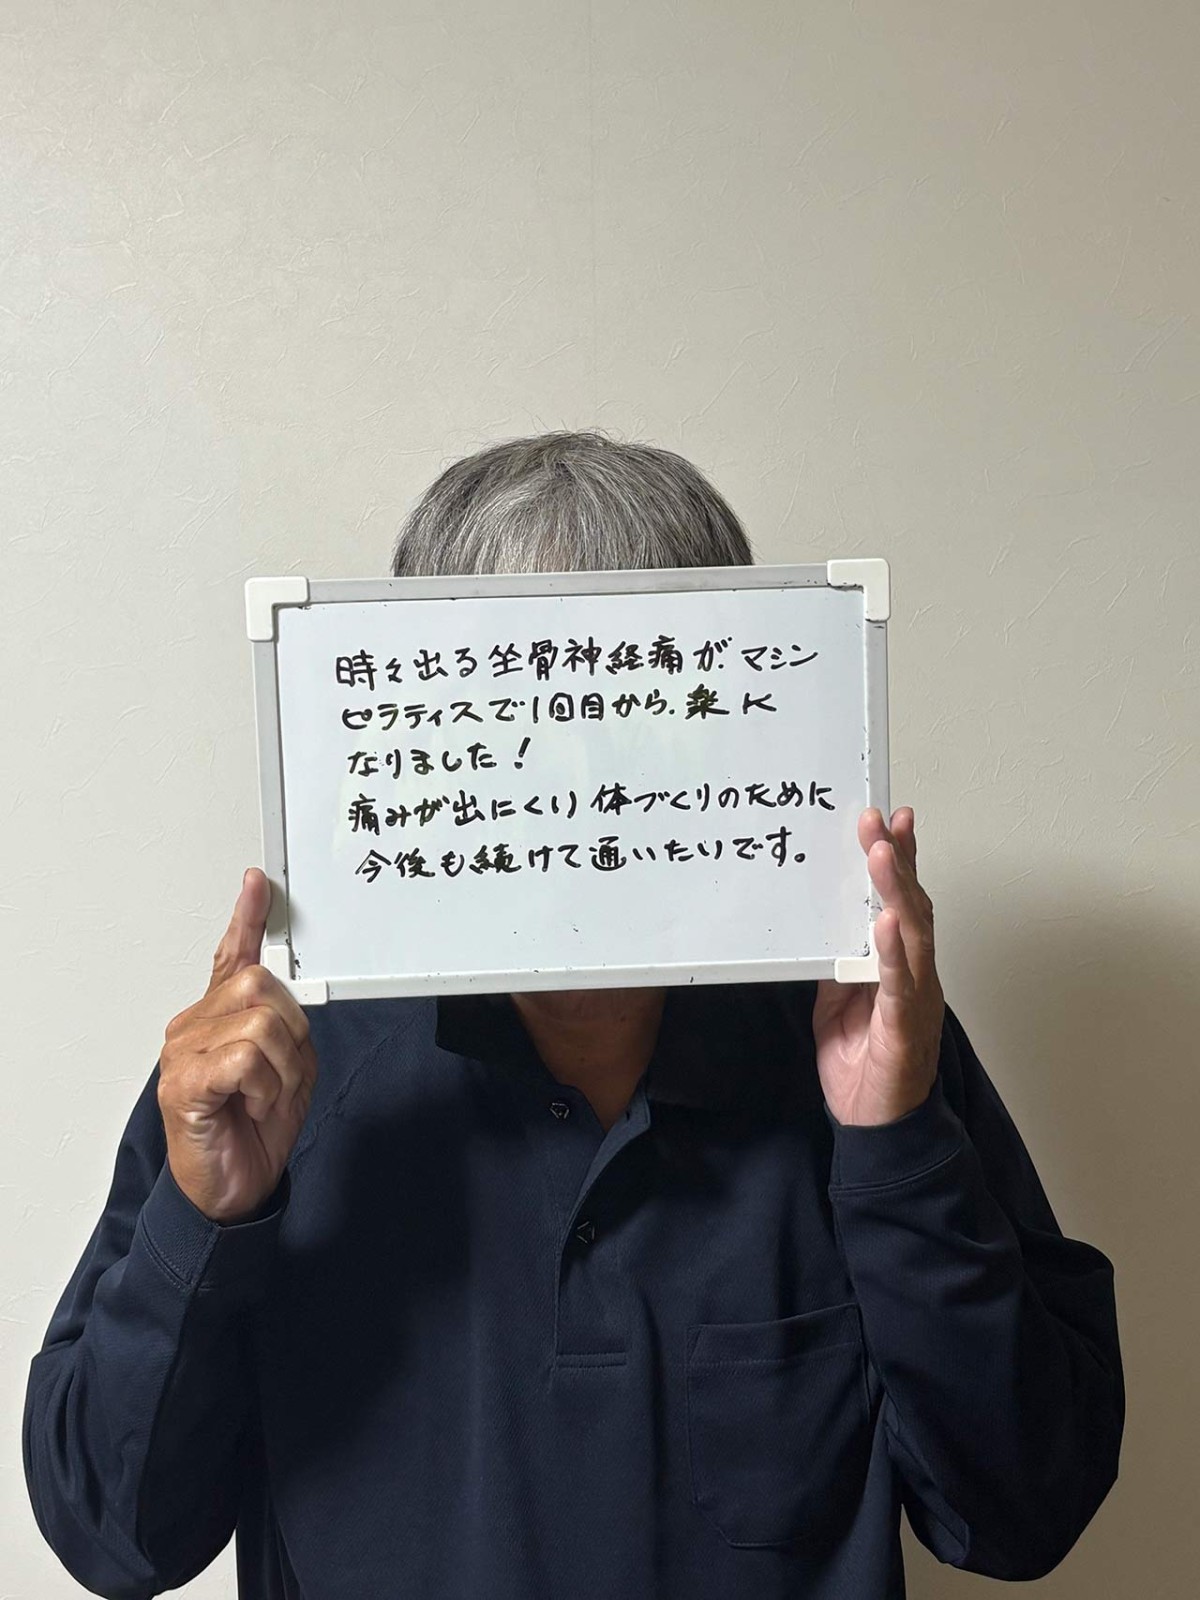 時々出る坐骨神経痛が、マシン
ピラティスで1回目から、楽に
なりました!
痛みが出にくい体づくりのために
今後も続けて通いたいです。